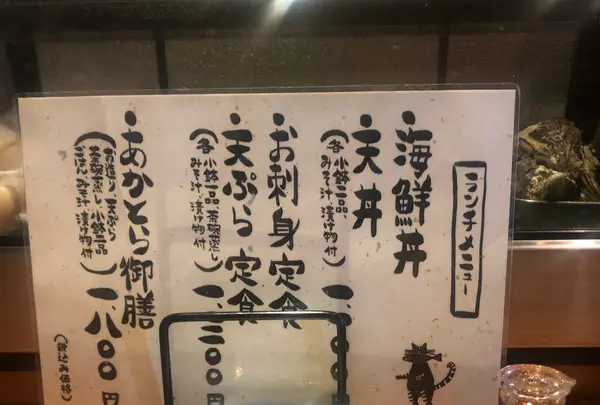 ランチメニュー
海鮮丼
天丼
(各 小鉢一品
みそ汁、漬け物付)
お刺身定食
天ぷら定食
(各 小鉢一品 茶碗蒸し
みそ汁、漬け物付)
一、三〇〇円
あかとら御膳
(お造り 天ぷら
茶碗蒸し 小鉢一品
ごはん みそ汁 漬け物付)
一八〇〇円
(税込み価格)